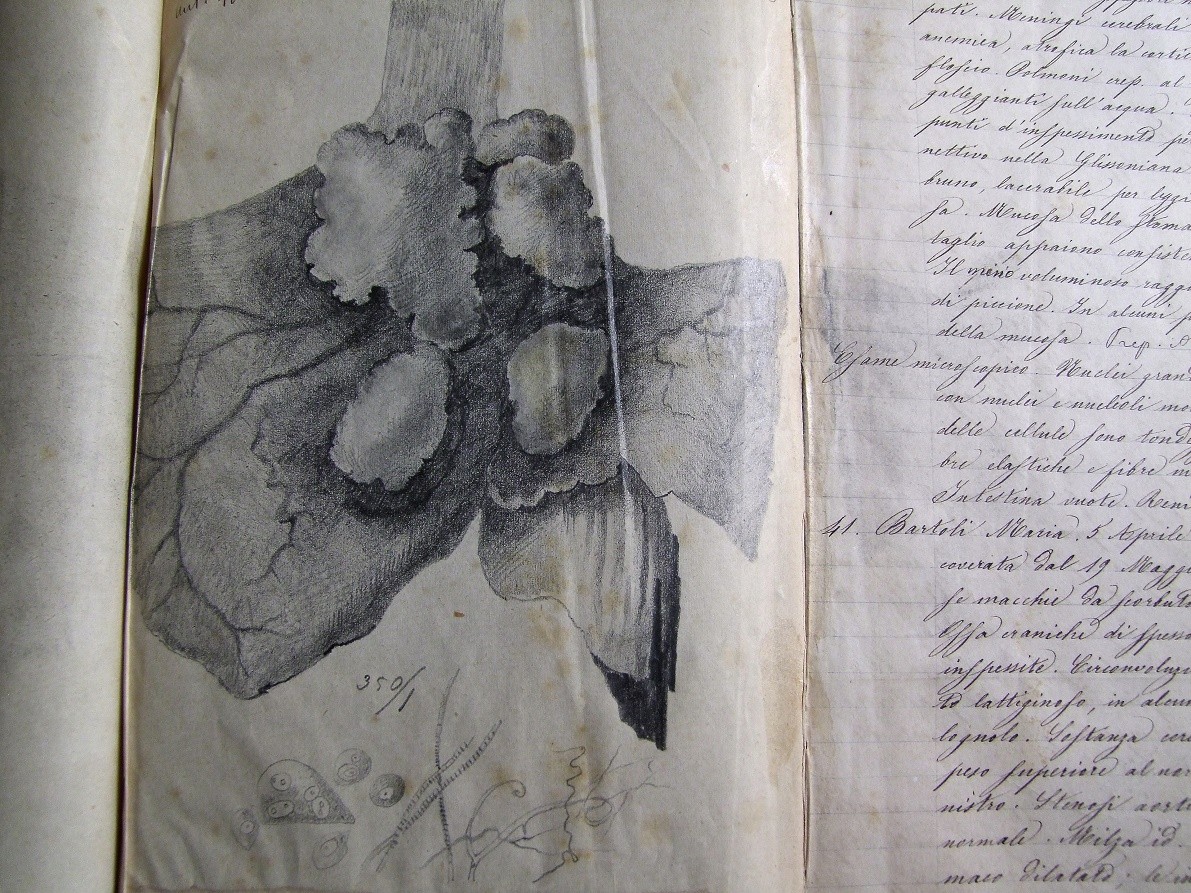 350/1
pati. Meningi cerebrali
anemica, atrofica la cortic
floscio. Polmoni crep. al
galleggianti sull'acqua.
punti d'inspessimento pe
nettivo nella Glissoniana
bruno, lacerabile per legg
sa. Mucosa dello stoma
taglio appaiono consiste
Il meno voluminoso ragg
di piccione. In alcuni p
della mucosa. Prep.
Esame microscopico. Nuclei gran
con nuclei e nucleoli mo
delle cellule sono tond
bre elastiche e fibre m
Intestina vuote. Reni
41. Bartoli Maria. 5 Aprile
coverata dal 19 Magg
se macchie da scorbuto
Ossa craniche di spesso
inspessite. Circonvoluzi
to lattiginoso, in alcun
lognolo. Sostanza cere
peso superiore al nor
nistro. Stenosi aort
normale. Milza id.
maco dilatato.